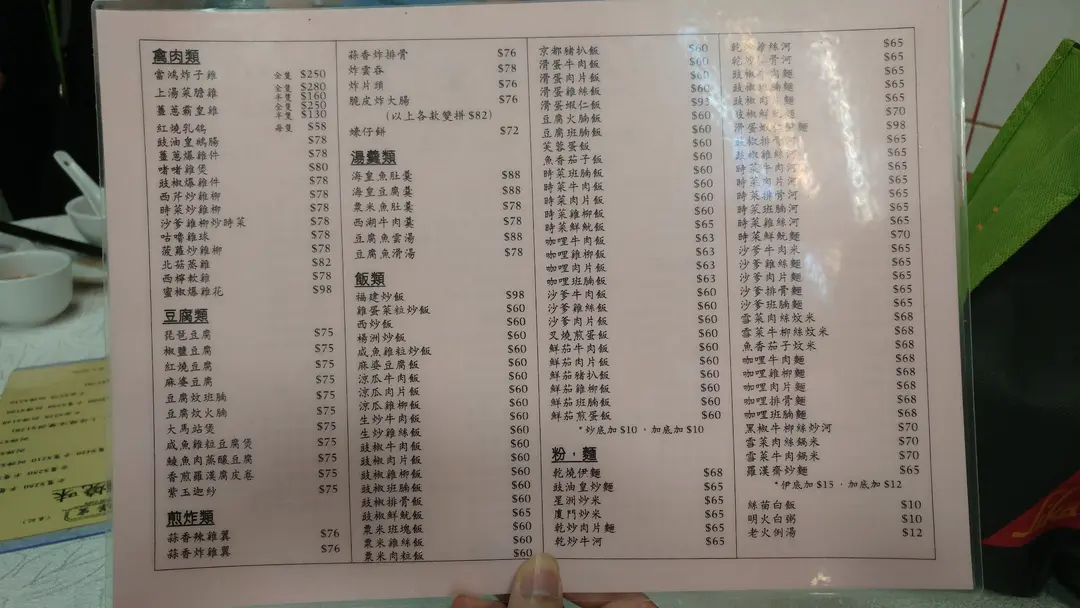 禽肉類
當鴻炸子雞 全隻 $250
上湯菜膽雞 全隻 $280
半隻 $160
薑蔥霸皇雞 全隻 $250
半隻 $130
紅燒乳鴿 每隻 $58
豉油皇鵝腸 $78
薑蔥爆雞件 $78
啫啫雞煲 $80
豉椒爆雞件 $78
西芹炒雞柳 $78
時菜炒雞柳 $78
沙爹雞柳炒時菜 $78
咕嚕雞球 $78
菠蘿炒雞柳 $78
北菇蒸雞 $82
西檸軟雞 $78
蜜椒爆雞花 $98
豆腐類
琵琶豆腐 $75
椒鹽豆腐 $75
紅燒豆腐 $75
麻婆豆腐 $75
豆腐炆班腩 $75
豆腐炆火腩 $75
大馬站煲 $75
咸魚雞粒豆腐煲 $75
鯪魚肉蒸釀豆腐 $75
香煎羅漢腐皮卷 $75
紫玉迦紗 $75
煎炸類
蒜香辣雞翼 $76
蒜香炸雞翼 $76
蒜香炸排骨 $76
炸雲吞 $78
炸片頭 $76
脆皮炸大腸 $76
(以上各款雙拼 $82)
蠔仔餅 $72
湯羹類
海皇魚肚羹 $88
海皇豆腐羹 $88
粟米魚肚羹 $78
西湖牛肉羹 $78
豆腐魚雲湯 $88
豆腐魚滑湯 $78
飯類
福建炒飯 $98
雞蛋菜粒炒飯 $60
西炒飯 $60
楊洲炒飯 $60
咸魚雞粒炒飯 $60
麻婆豆腐飯 $60
涼瓜牛肉飯 $60
涼瓜肉片飯 $60
涼瓜雞柳飯 $60
生炒牛肉飯 $60
生炒雞絲飯 $60
豉椒牛肉飯 $60
豉椒肉片飯 $60
豉椒雞柳飯 $60
豉椒班腩飯 $60
豉椒排骨飯 $60
豉椒鮮魷飯 $65
粟米班塊飯 $60
粟米雞絲飯 $60
粟米肉粒飯 $60
京都豬扒飯 $60
滑蛋牛肉飯 $60
滑蛋肉片飯 $60
滑蛋雞絲飯 $60
滑蛋蝦仁飯
豆腐火腩飯 $60
豆腐班腩飯 $60
芙蓉蛋飯 $60
魚香茄子飯 $60
時菜班腩飯 $60
時菜牛肉飯 $60
時菜肉片飯 $60
時菜雞柳飯 $60
時菜鮮魷飯 $65
咖喱牛肉飯 $63
咖喱雞柳飯 $63
咖喱肉片飯 $63
咖喱班腩飯 $63
沙爹牛肉飯 $60
沙爹雞絲飯 $60
沙爹肉片飯 $60
叉燒煎蛋飯 $60
鮮茄牛肉飯 $60
鮮茄肉片飯 $60
鮮茄豬扒飯 $60
鮮茄雞柳飯 $60
鮮茄班腩飯 $60
鮮茄煎蛋飯 $60
*炒底加 $10，加底加 $10
粉，麵
乾燒伊麵 $68
豉油皇炒麵 $65
星洲炒米 $65
廈門炒米 $65
乾炒肉片麵 $65
乾炒牛河 $65
乾炒雞絲河 $65
乾炒排骨河 $65
豉椒牛肉麵 $65
豉椒班腩麵 $65
豉椒肉片麵 $65
豉椒鮮魷麵 $70
滑蛋蝦仁麵 $98
豉椒排骨河 $65
豉椒雞絲河 $65
時菜牛肉河 $65
時菜肉片河 $65
時菜排骨河 $65
時菜班腩河 $65
時菜雞絲河 $65
時菜鮮魷麵 $70
沙爹牛肉米 $65
沙爹雞絲麵 $65
沙爹肉片麵 $65
沙爹排骨麵 $65
沙爹班腩麵 $65
雪菜肉絲炆米 $68
雪菜牛柳絲炆米 $68
魚香茄子炆米 $68
咖喱牛肉麵 $68
咖喱雞柳麵 $68
咖喱肉片麵 $68
咖喱排骨麵 $68
咖喱班腩麵 $68
黑椒牛柳絲炒河 $70
雪菜肉絲鍋米 $70
雪菜牛肉鍋米 $70
羅漢齋炒麵 $65
*伊底加 $15，加底加 $12
絲苗白飯 $10
明火白粥 $10
老火例湯 $12